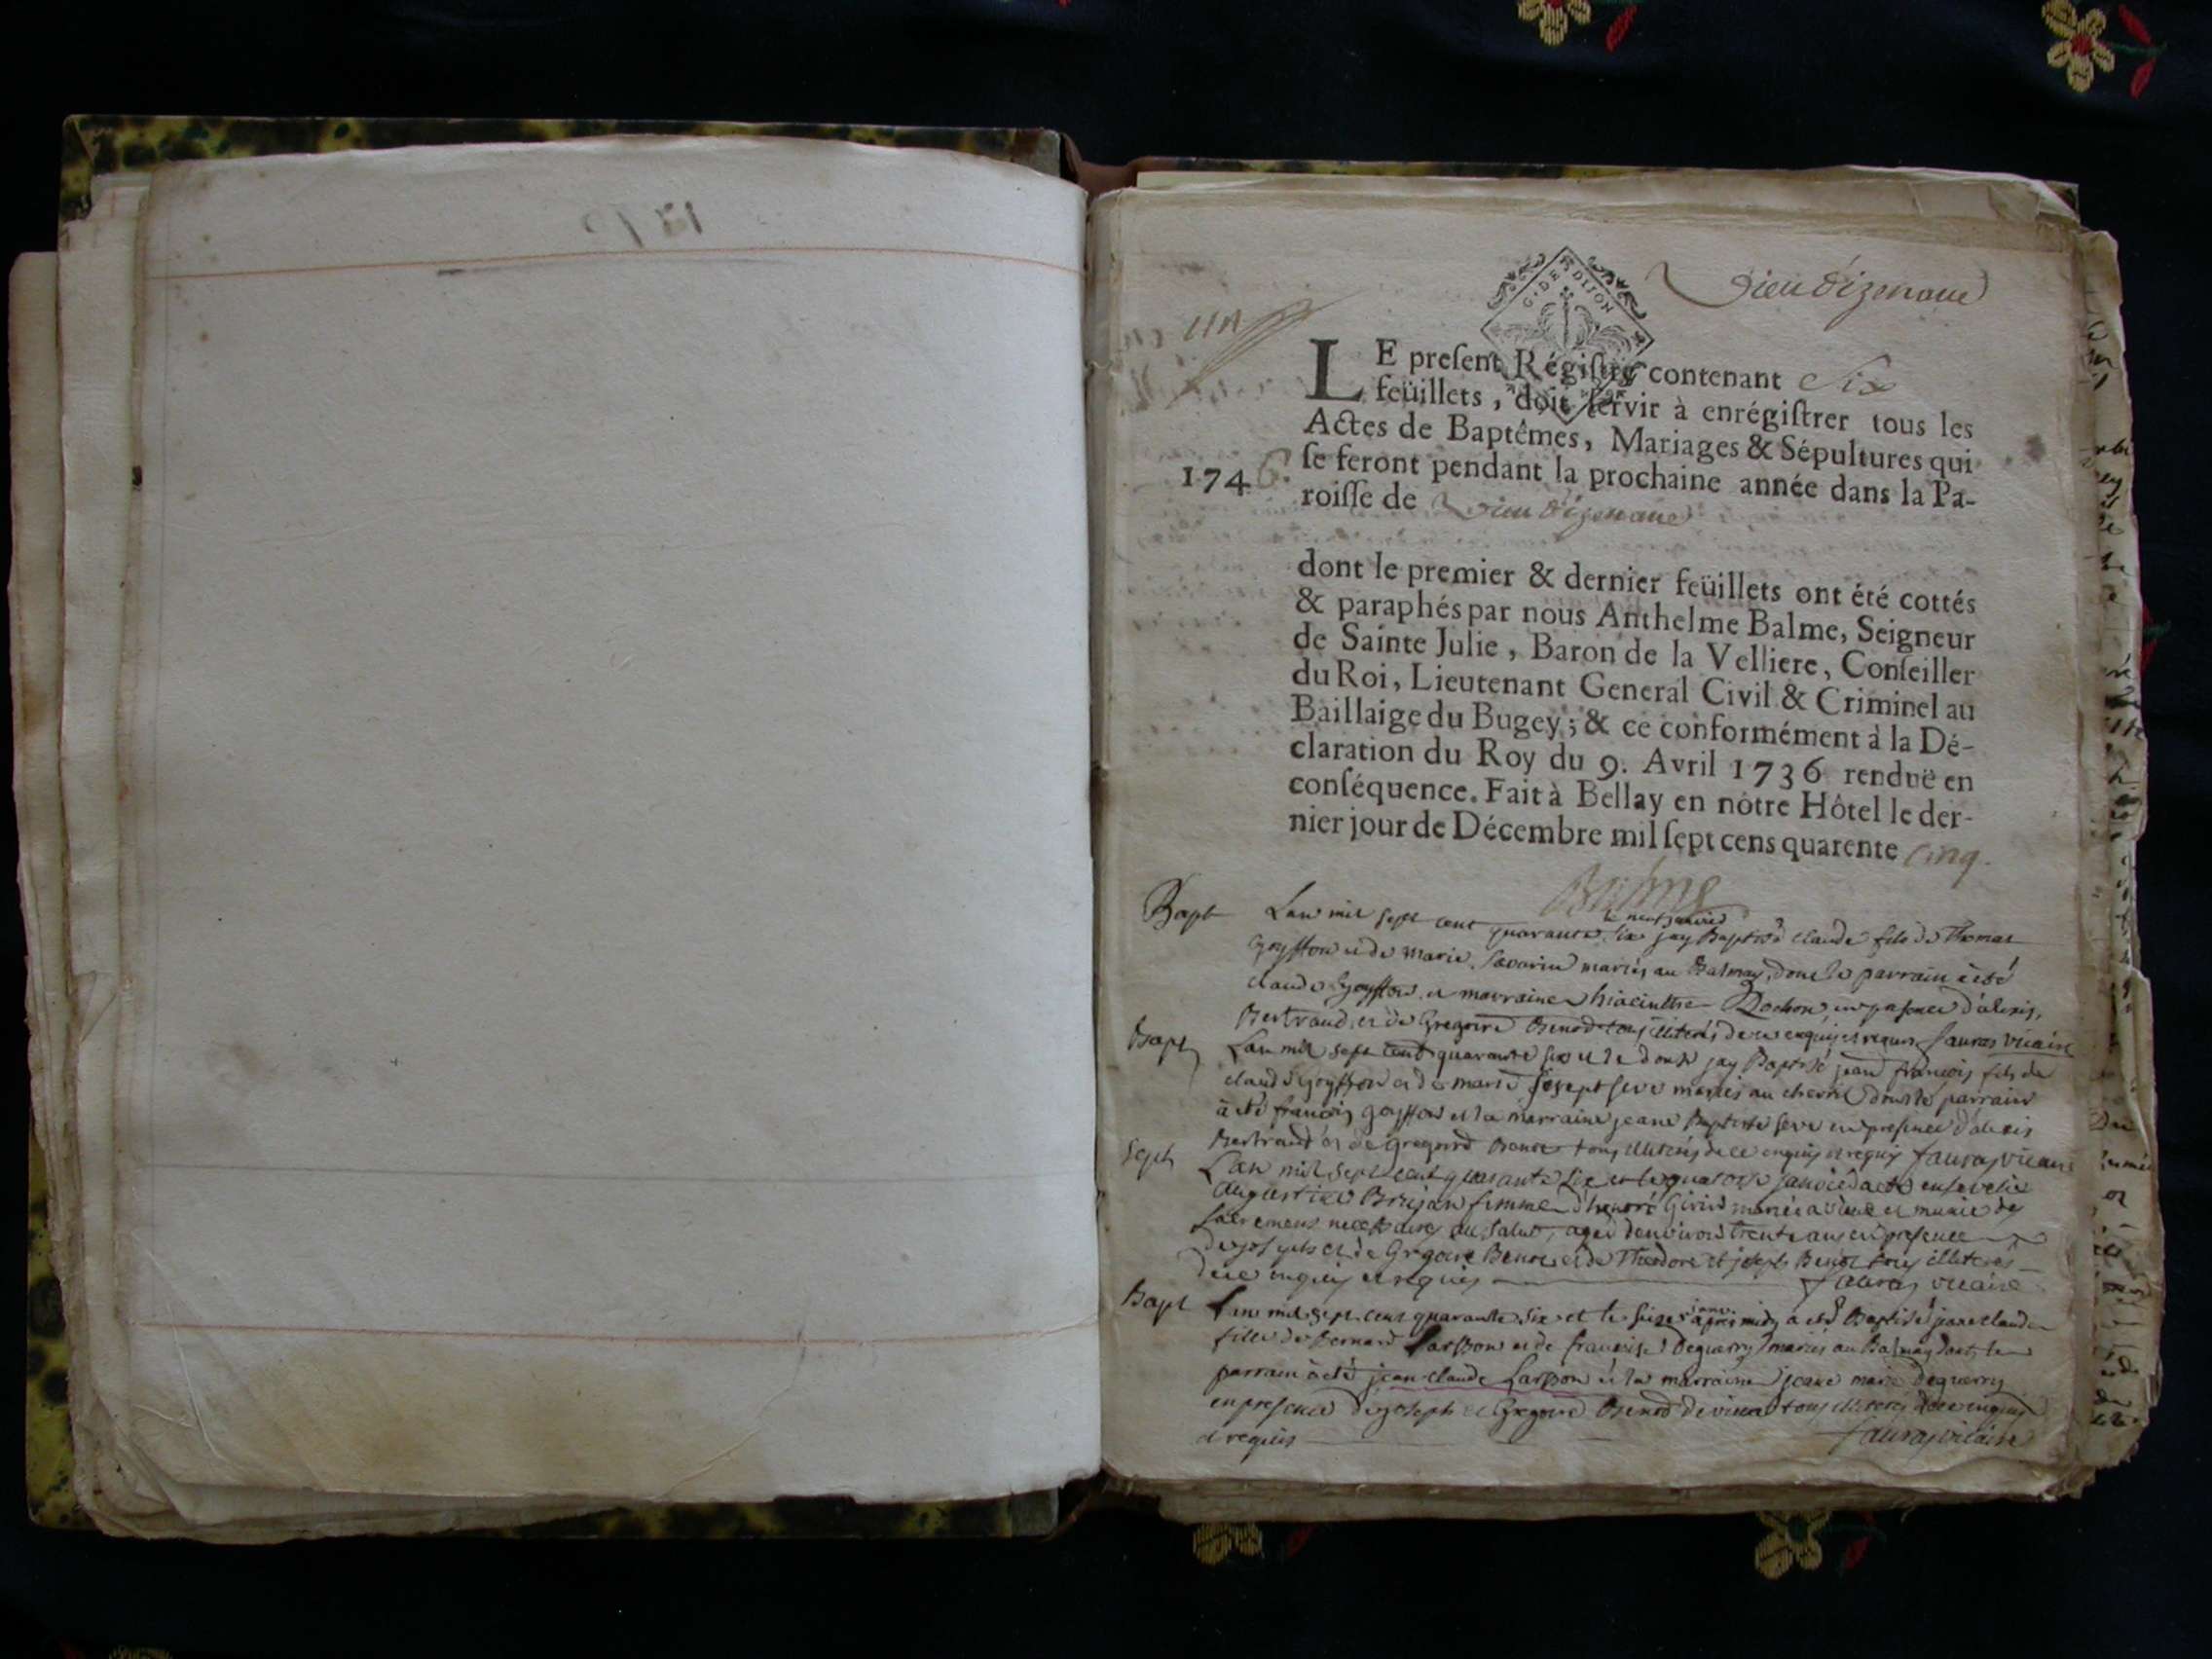 G. DE DIJON
Vieu d'izenave
un
LE preſent Régiſtre contenant Six
feüillets, doit ſervir à enrégiſtrer tous les
Actes de Baptêmes, Mariages & Sépultures qui
1746. ſe feront pendant la prochaine année dans la Pa-
roiſſe de Vieu d'izenave
dont le premier & dernier feüillets ont été cottés
& paraphés par nous Anthelme Balme, Seigneur
de Sainte Julie, Baron de la Velliere, Conſeiller
du Roi, Lieutenant General Civil & Criminel au
Baillaige du Bugey; & ce conformément à la Dé-
claration du Roy du 9. Avril 1736 renduë en
conſéquence. Fait à Bellay en nôtre Hôtel le der-
nier jour de Décembre mil ſept cens quarente cinq.
Balme
Bapt Lan mil sept cent quarante six le neuf janvier jay Baptisé claude fils de Thomas
Goyffon et de marie Savarin mariés au Balmay, dont le parrain à esté
claude Goyffon et marraine hiacinthe Rochon en presence d'alexis
Bertrand et de Gregoire Benod tous illiterés de ce enquis et requis fauras vicaire
Bapt Lan mil sept cent quarante six et le douse jay Baptisé jean françois fils de
claude Goyffon et de marie seve mariés au dont le parrain
à eté françois goyffon et la marraine jeane Baptiste seve en presence d'alexis
Bertrand et de gregoire Benod tous illiterés de ce enquis et requis fauras vicaire
Seph Lan mil sept cent quarante six et le quatorse janvier a eté ensevelie
femme d'honoré mariée a vieu et munie des
sacremens necessaires au salut, agée denviron trente ans en presence
de joseph et de Gregoire Benod et de Theodore et joseph Benod tous illiterés
de ce enquis et requis fauras vicaire
Bapt Lan mil sept cent quarante six et le seize janv. apres midy a eté Baptisé jeane claude
fille de Bernard Larson et de françoise Deguerry mariés au Balmay dont le
parrain à eté jean claude Larson et la marraine jeane marie Deguerry
en presence de joseph et Gregoire Benod de vieu tous illiterés de ce enquis
et requis fauras vicaire